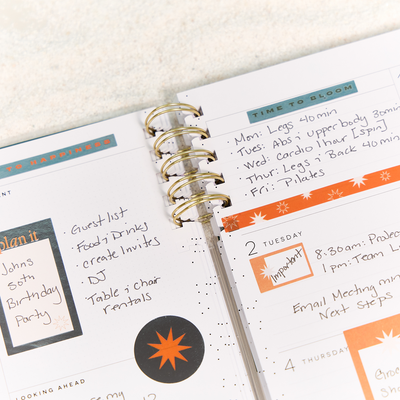 HAPPINESS
plan it
Johns
50th
Birthday
Party
• Guest list
• Food & Drinks
• create Invites
• DJ
• Table & Chair
rentals
LOOKING AHEAD
my
TIME TO BLOOM
• Mon: Legs 40min
• Tues: Abs & upper body 30min
• Wed: Cardio 1 hour [spin]
• Thur: Legs & Back 40min
• Fri: Pilates
2 TUESDAY
Important
8:30am:
1pm: Team
Email Meeting
Next Steps
4 THURSDAY